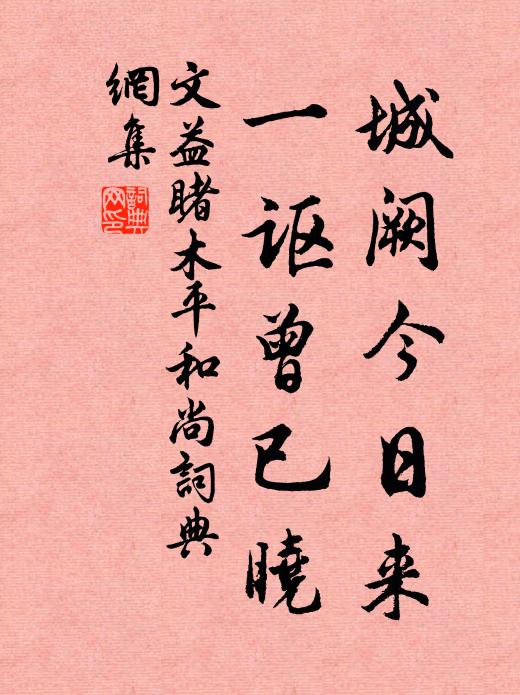 城阙今日来
一讴曾已晓
文益睹木平和尚詞典
網集
詞典網印